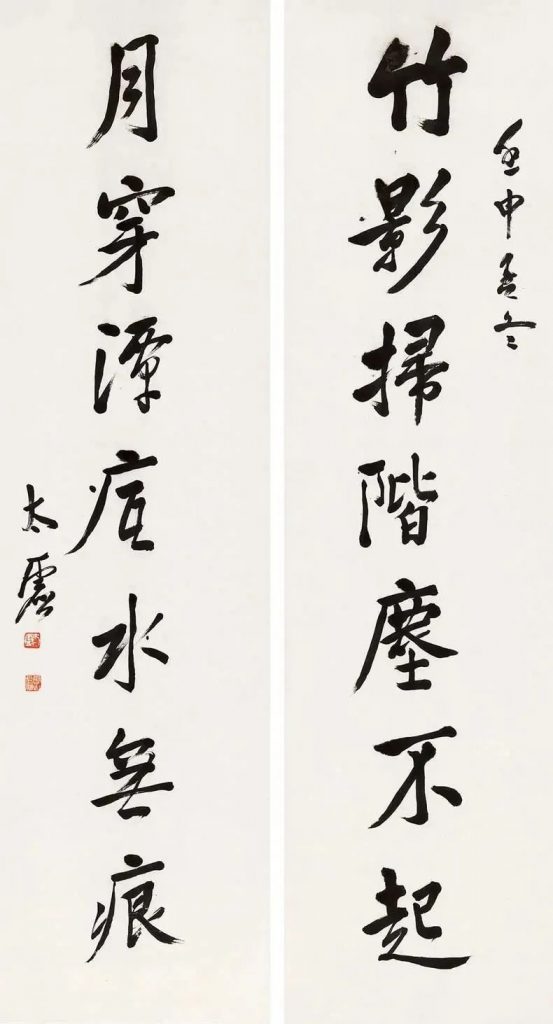 壬申孟冬
竹影掃階塵不起
月穿潭底水無痕
太虛